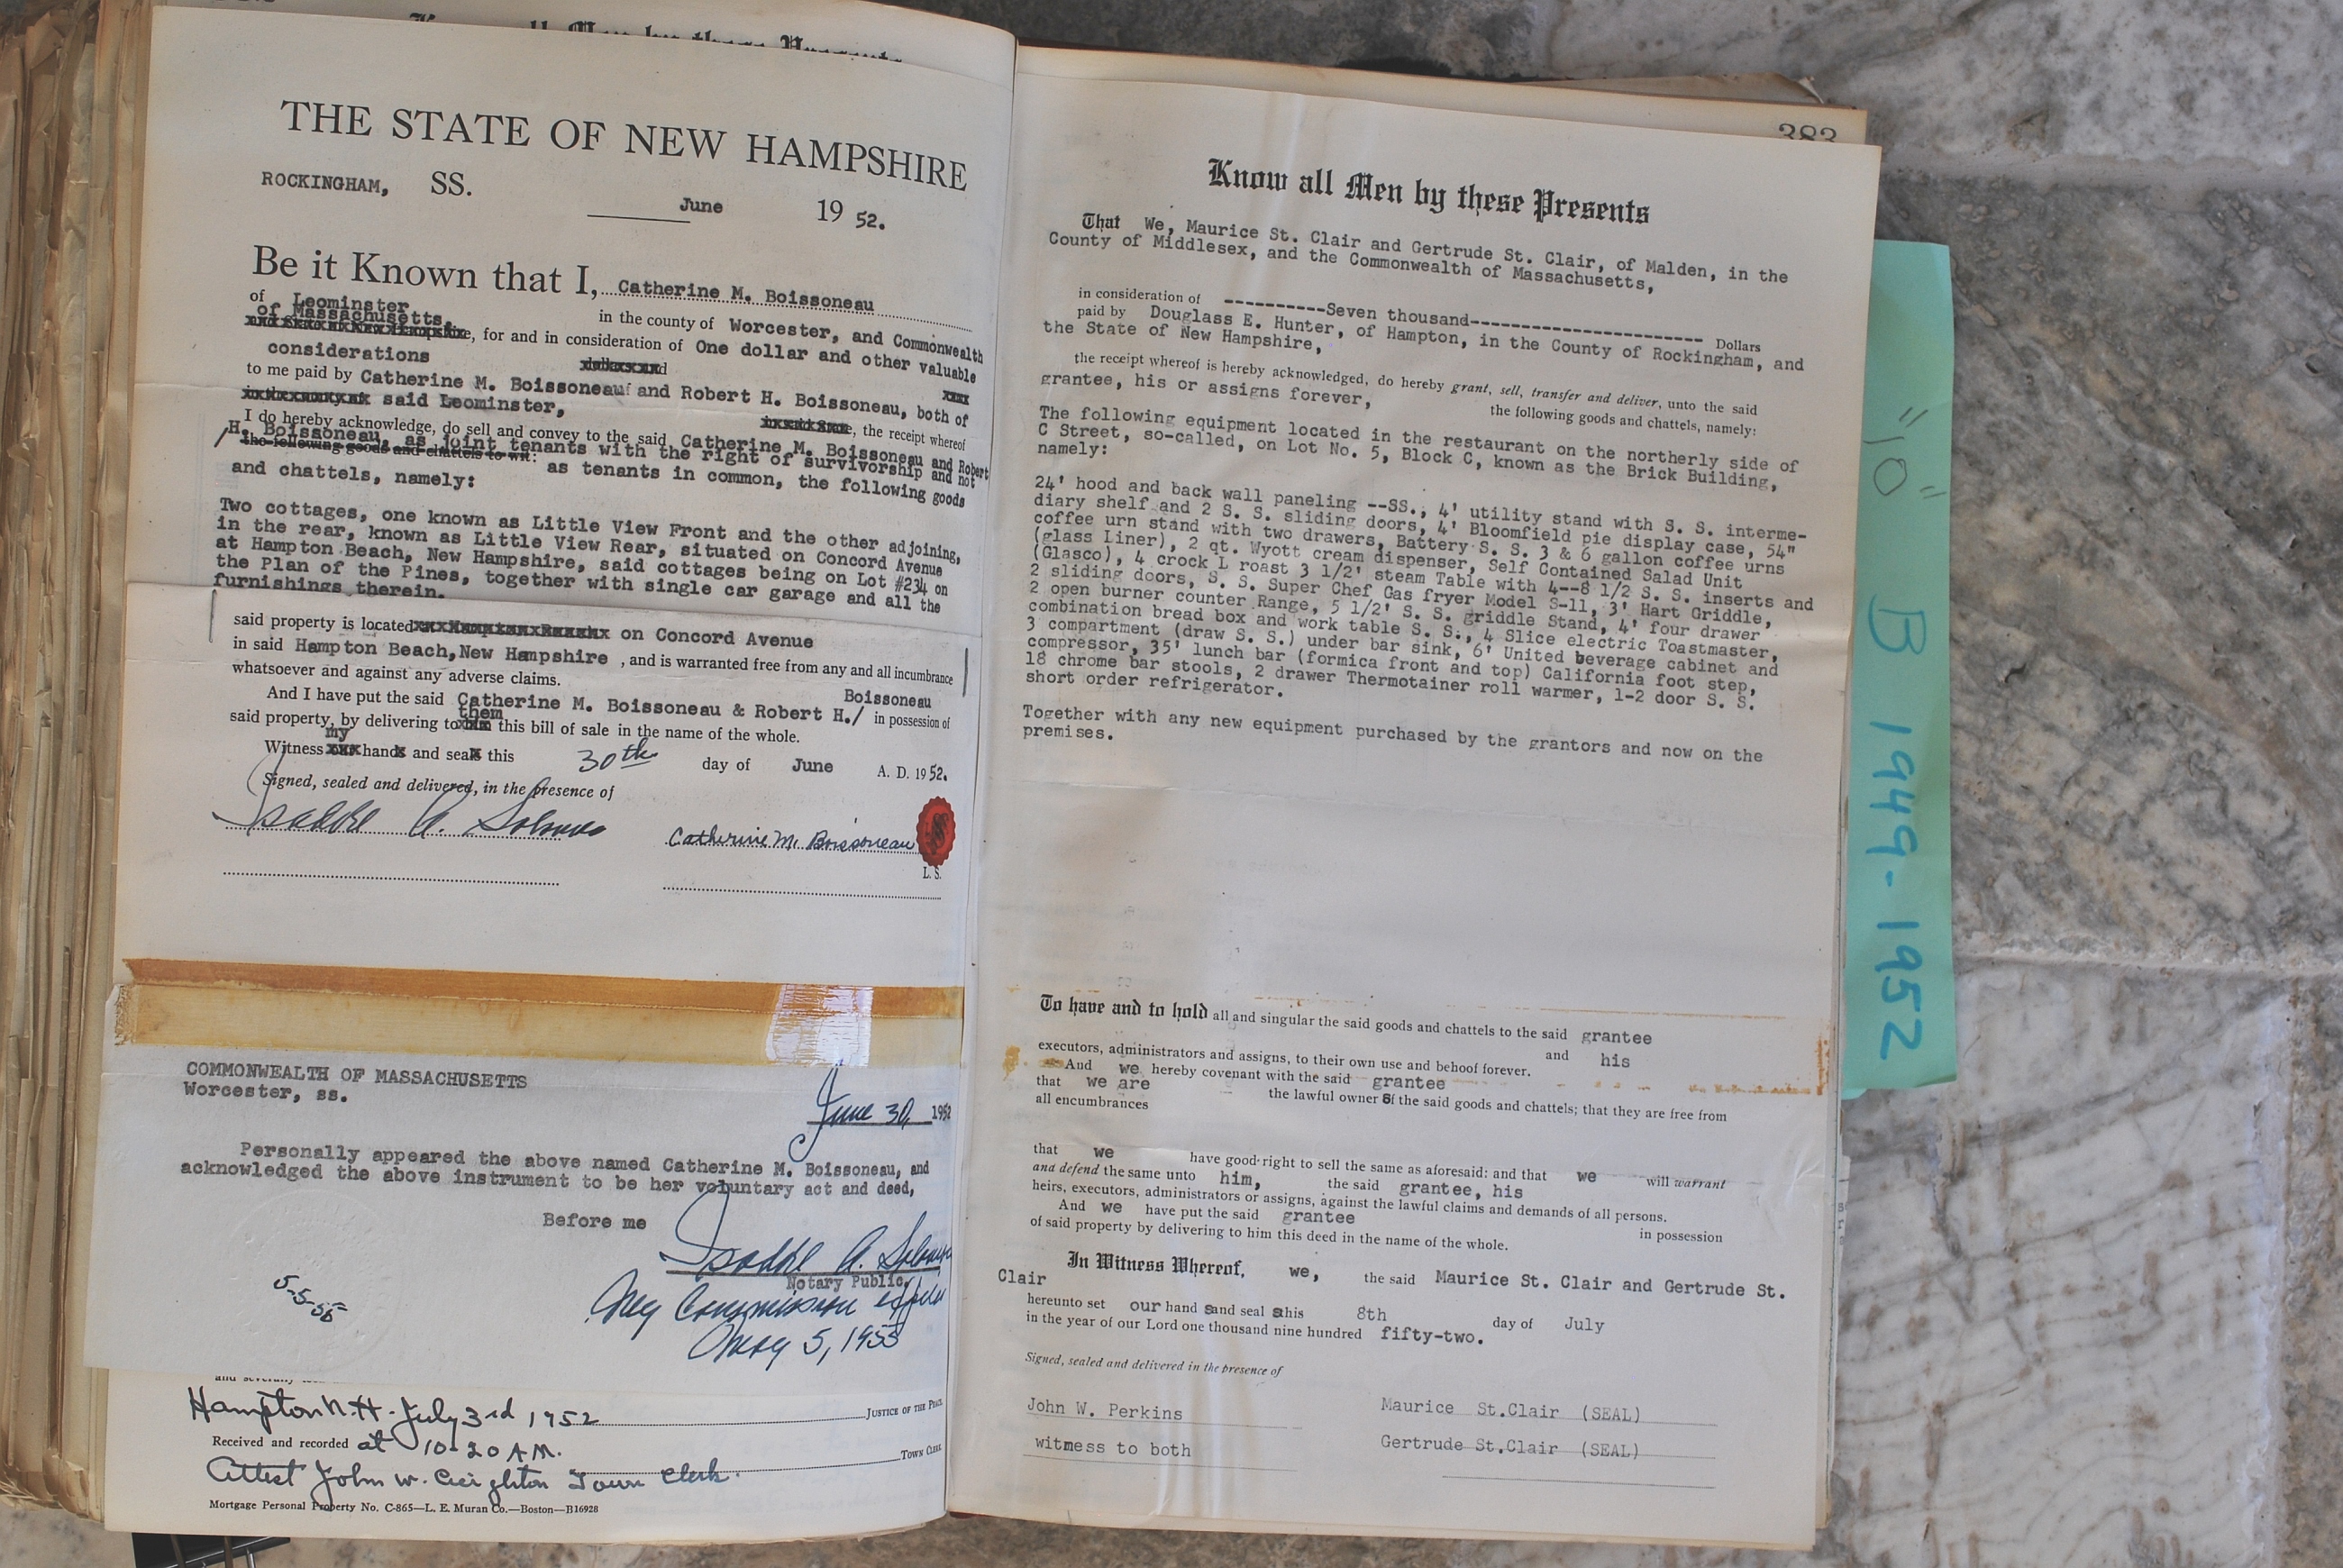 THE STATE OF NEW HAMPSHIRE
ROCKINGHAM, SS.
June 19 52.
Be it Known that I, Catherine M. Boissoneau
of Leominster in the county of Worcester, and Commonwealth
of Massachusetts, for and in consideration of One dollar and other valuable
considerations
to me paid by Catherine M. Boissoneau and Robert H. Boissoneau, both of
said Leominster, the receipt whereof
I do hereby acknowledge, do sell and convey to the said Catherine M. Boissoneau and Robert
H. Boissoneau, as joint tenants with the right of survivorship and not
the following goods and chattels to wit: as tenants in common, the following goods
and chattels, namely:
Two cottages, one known as Little View Front and the other adjoining,
in the rear, known as Little View Rear, situated on Concord Avenue
at Hampton Beach, New Hampshire, said cottages being on Lot #234 on
the Plan of the Pines, together with single car garage and all the
furnishings therein.
said property is located on Concord Avenue
in said Hampton Beach, New Hampshire , and is warranted free from any and all incumbrance
whatsoever and against any adverse claims.
And I have put the said Catherine M. Boissoneau & Robert H./ Boissoneau in possession of
said property, by delivering to them this bill of sale in the name of the whole.
Witness my hand and seal this 30th day of June A. D. 1952.
Signed, sealed and delivered, in the presence of
Catherine M. Boissoneau
L. S.
COMMONWEALTH OF MASSACHUSETTS
Worcester, ss.
June 30, 1952
Personally appeared the above named Catherine M. Boissoneau, and
acknowledged the above instrument to be her voluntary act and deed,
Before me
Notary Public
My Commission expires
May 5, 1955
5-5-55
Hampton N.H. July 3rd 1952
JUSTICE OF THE PEACE
Received and recorded at 10-20 A.M.
TOWN CLERK
Attest John W. Creighton Town Clerk.
Mortgage Personal Property No. C-865—L. E. Muran Co.—Boston—B16928
383
Know all Men by these Presents
That We, Maurice St. Clair and Gertrude St. Clair, of Malden, in the
County of Middlesex, and the Commonwealth of Massachusetts,
in consideration of ----------Seven thousand----------------------- Dollars
paid by Douglass E. Hunter, of Hampton, in the County of Rockingham, and
the State of New Hampshire,
the receipt whereof is hereby acknowledged, do hereby grant, sell, transfer and deliver, unto the said
grantee, his or assigns forever,
the following goods and chattels, namely:
The following equipment located in the restaurant on the northerly side of
C Street, so-called, on Lot No. 5, Block C, known as the Brick Building,
namely:
24' hood and back wall paneling --SS., 4' utility stand with S. S. interme-
diary shelf and 2 S. S. sliding doors, 4' Bloomfield pie display case, 54"
coffee urn stand with two drawers, Battery S. S. 3 & 6 gallon coffee urns
(glass Liner), 2 qt. Wyott cream dispenser, Self Contained Salad Unit
(Glasco), 4 crock L roast 3 1/2' steam Table with 4--8 1/2 S. S. inserts and
2 sliding doors, S. S. Super Chef Gas fryer Model S-11, 3' Hart Griddle,
2 open burner counter Range, 5 1/2' S. S. griddle Stand, 4' four drawer
combination bread box and work table S. S., 4 Slice electric Toastmaster,
3 compartment (draw S. S.) under bar sink, 6' United beverage cabinet and
compressor, 35' lunch bar (formica front and top) California foot step,
18 chrome bar stools, 2 drawer Thermotainer roll warmer, 1-2 door S. S.
short order refrigerator.
Together with any new equipment purchased by the grantors and now on the
premises.
To have and to hold all and singular the said goods and chattels to the said grantee
and his
executors, administrators and assigns, to their own use and behoof forever.
And we hereby covenant with the said grantee
that we are the lawful owner of the said goods and chattels; that they are free from
all encumbrances
that we have good right to sell the same as aforesaid: and that we will warrant
and defend the same unto him, the said grantee, his
heirs, executors, administrators or assigns, against the lawful claims and demands of all persons.
And we have put the said grantee in possession
of said property by delivering to him this deed in the name of the whole.
In Witness Whereof, we, the said Maurice St. Clair and Gertrude St.
Clair
hereunto set our hand sand seal sthis 8th day of July
in the year of our Lord one thousand nine hundred fifty-two.
Signed, sealed and delivered in the presence of
John W. Perkins Maurice St.Clair (SEAL)
witness to both Gertrude St.Clair (SEAL)
"10" B 1949-1952